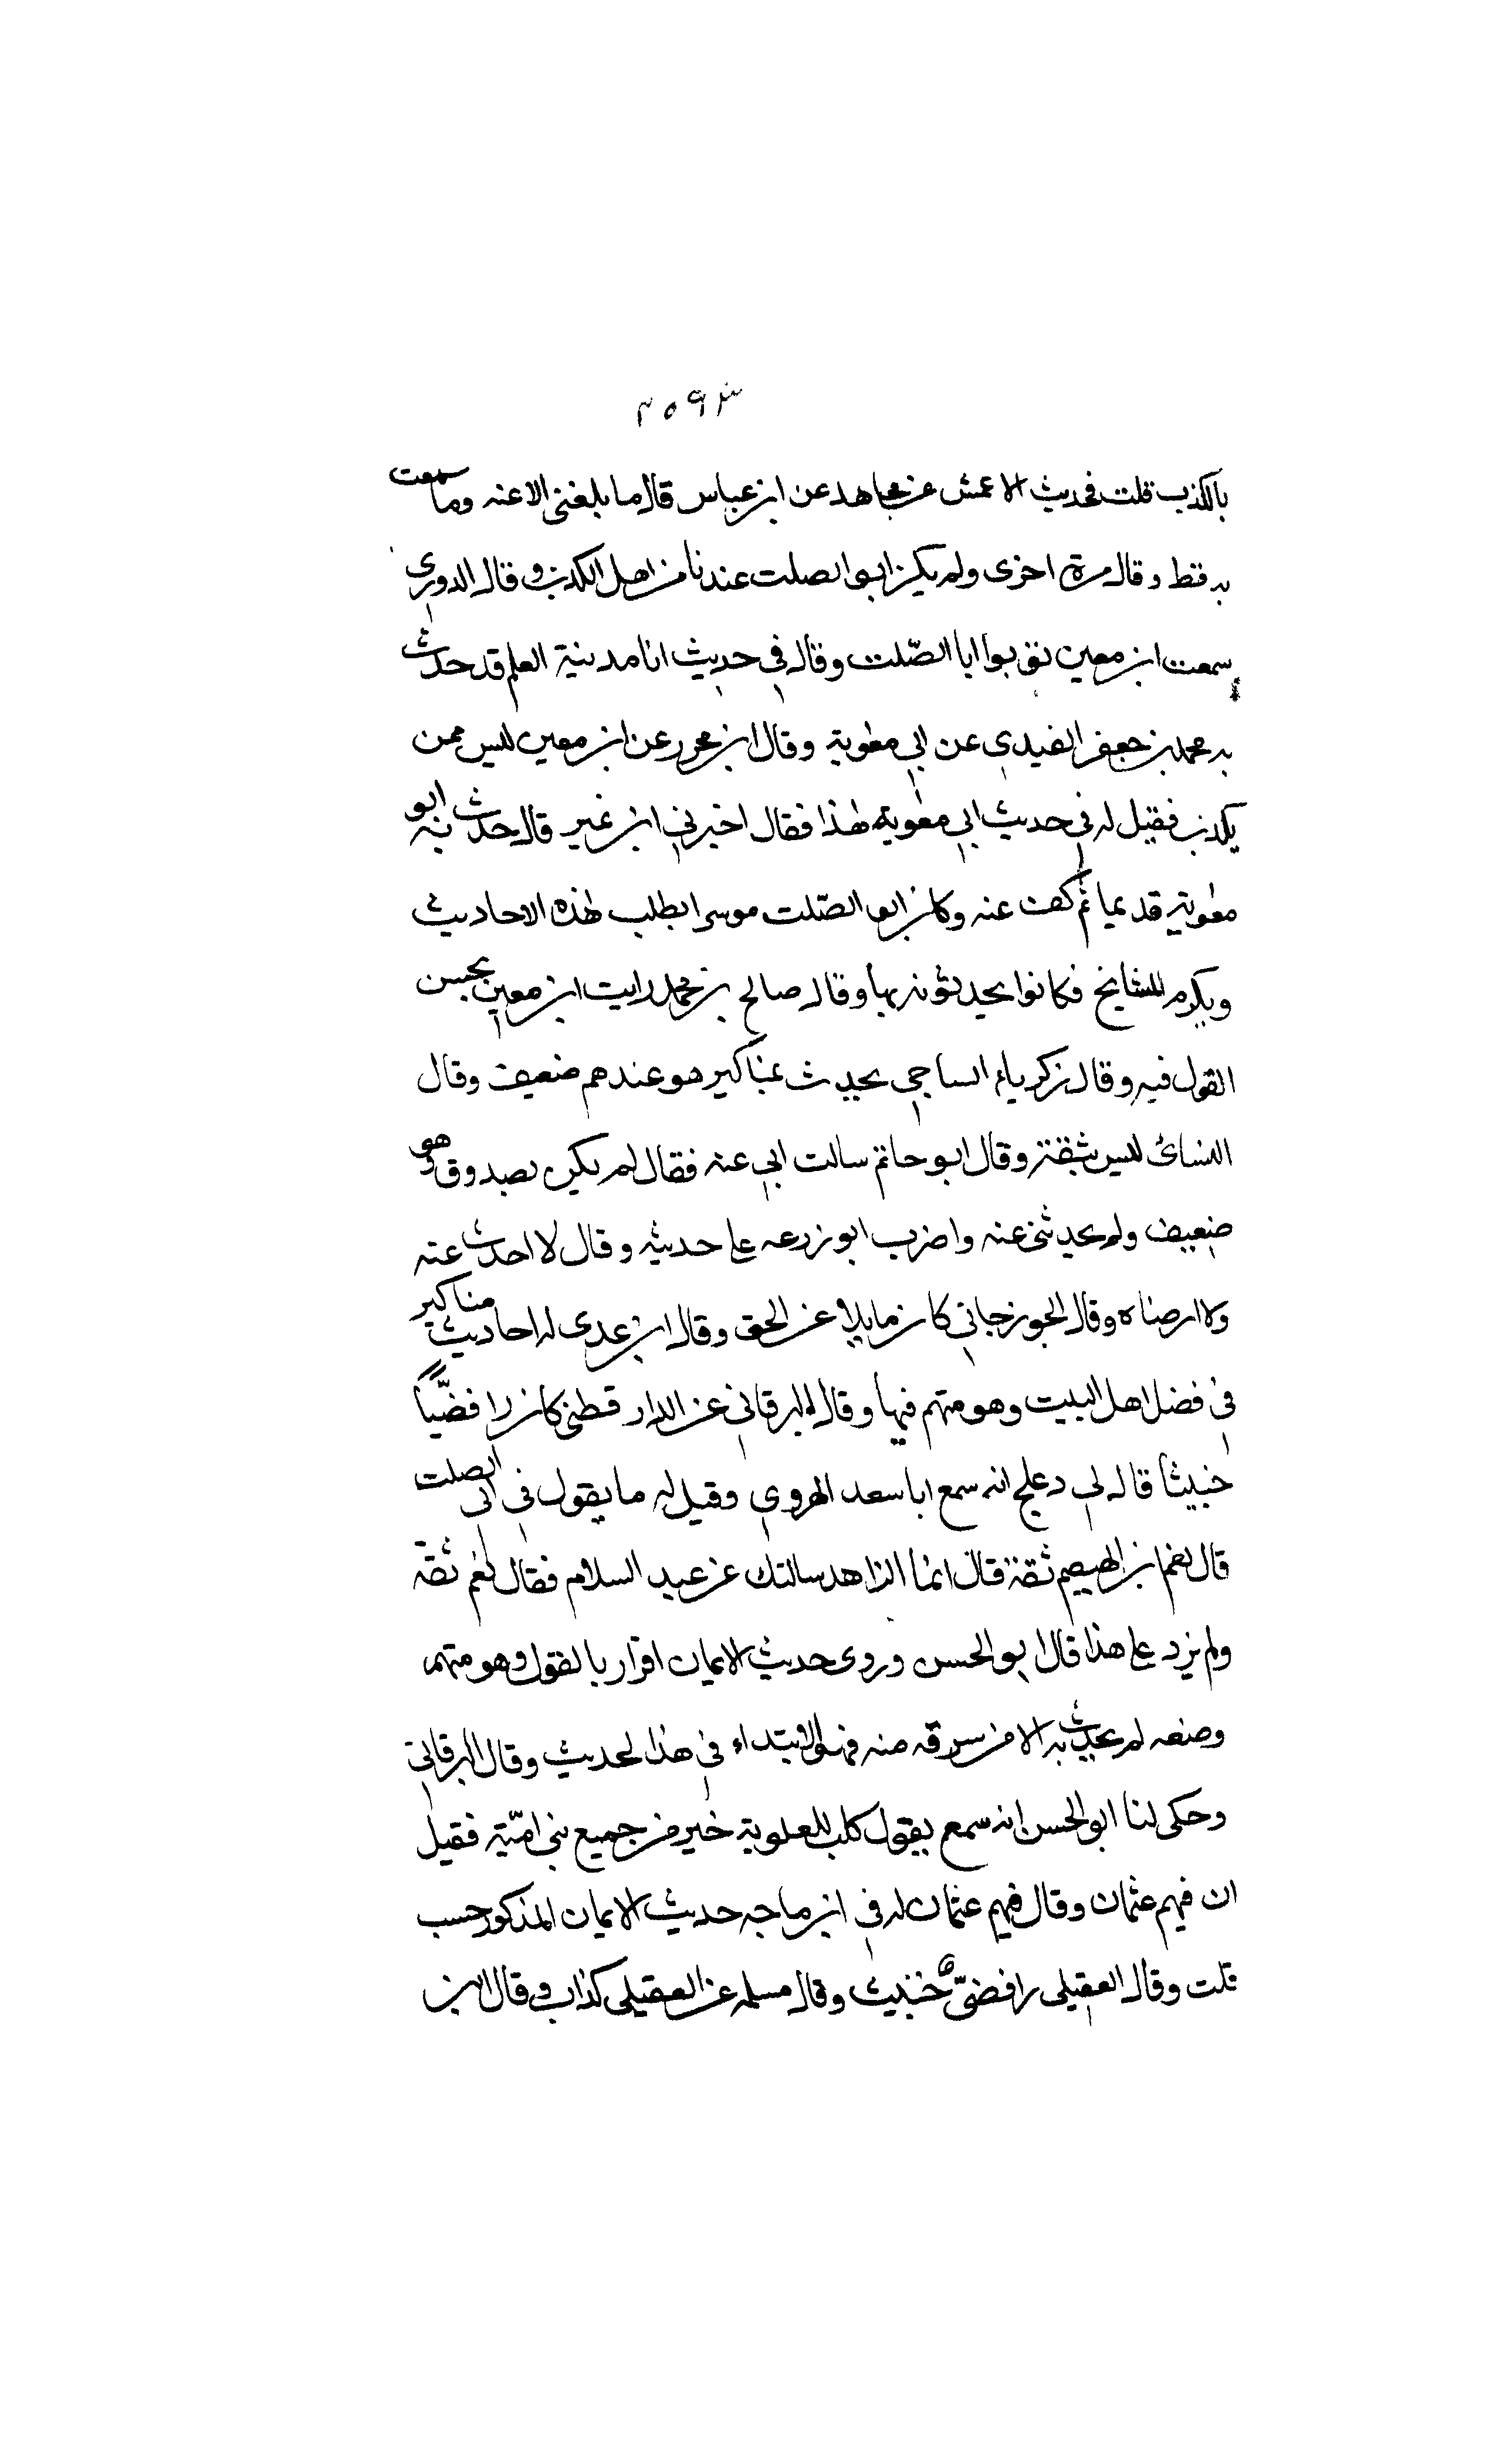 بالكذب قلت فحديث الاعمش عن مجاهد عن ابن عباس قال ما بلغنى الا عنه وما سمعت
به قط وقال مرة اخرى ولم يكن ابو الصلت عندنا من اهل الكذب وقال الدورى
سمعت ابن معين يوثق ابا الصّلت وقال فى حديث انا مدينة العلم قد حدث
به محمد بن جعفر الفيدى عن ابى معوية وقال ابن محرر عن ابن معين ليس ممن
يكذب فقيل له فى حديث ابى معوية هذا فقال اخبرنى ابن نمير قال حدث به ابو
معوية قديما ثم كف عنه وكان ابو الصّلت موسرا يطلب هذه الاحاديث
ويكرم المشايخ فكانوا يحدثونه بها وقال صالح بن محمد رايت ابن معين يحسن
القول فيه وقال زكرياء الساجى يحدث بمناكير هو عندهم ضعيف وقال
النسائ ليس بثقة وقال ابو حاتم سالت ابى عنه فقال لم يكن بصدوق وهو
ضعيف ولم يحدثنى عنه واضرب ابو زرعه على حديثه وقال لا احدث عنه
ولا ارضاه وقال الجوزجانى كان زمايلا عن الحق وقال ابن عدى له احاديث مناكير
فى فضل اهل البيت وهو متهم فيها وقال البرقانى عن الدار قطنى كان رافضيّاً
خبيثا قال لى دعلج انه سمع ابا سعد الهروى وقيل له ما يقول فى ابى الصلت
قال نعم ابن الهيصم ثقة قال انما الزاهد سالتك عن عبد السلام فقال نعم ثقة
ولم يزد على هذا قال ابو الحسن وروى حديث الايمان اقرار بالقول وهو متهم
وضعه لم يحدث به الا من سرقه منه فهو الابتداء فى هذا الحديث وقال البرقانى
وحكى لنا ابو الحسن انه سمع يقول كلب للعلوية خير من جميع بنى اميّة فقيل
ان فيهم عثمان وقال فيهم عثمان له فى ابن ماجه حديث الايمان المذكور حسب
قلت وقال العقيلى رافضىّ خبيث وقال مسلمه عن العقيلى كذاب وقال ابن